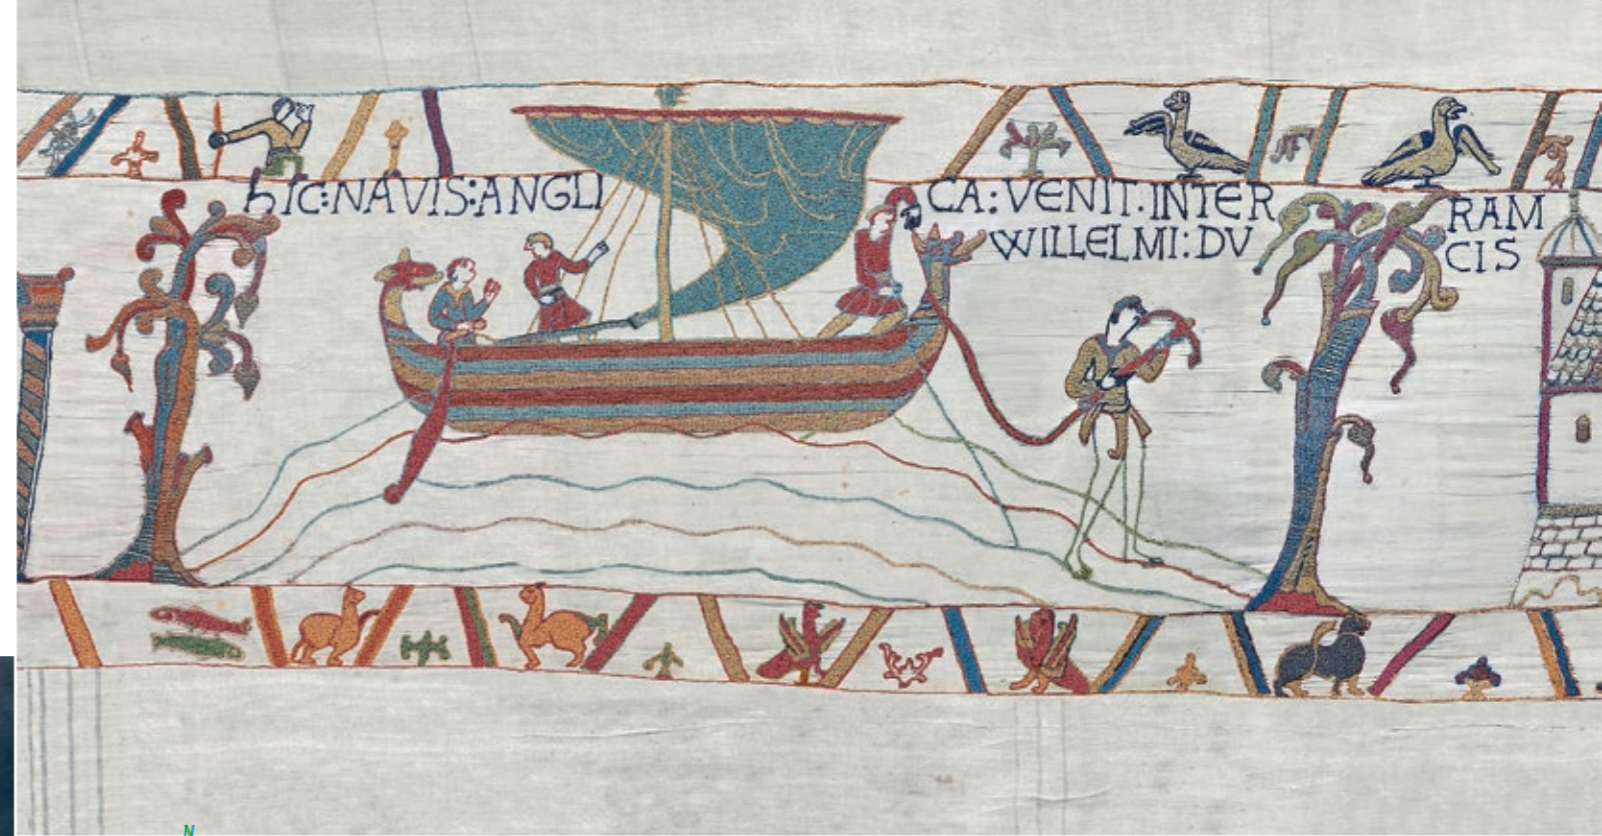 hIC:NAVIS:ANGLI CA:VENIT.INTER RAM
WILLELMI:DV CIS
N